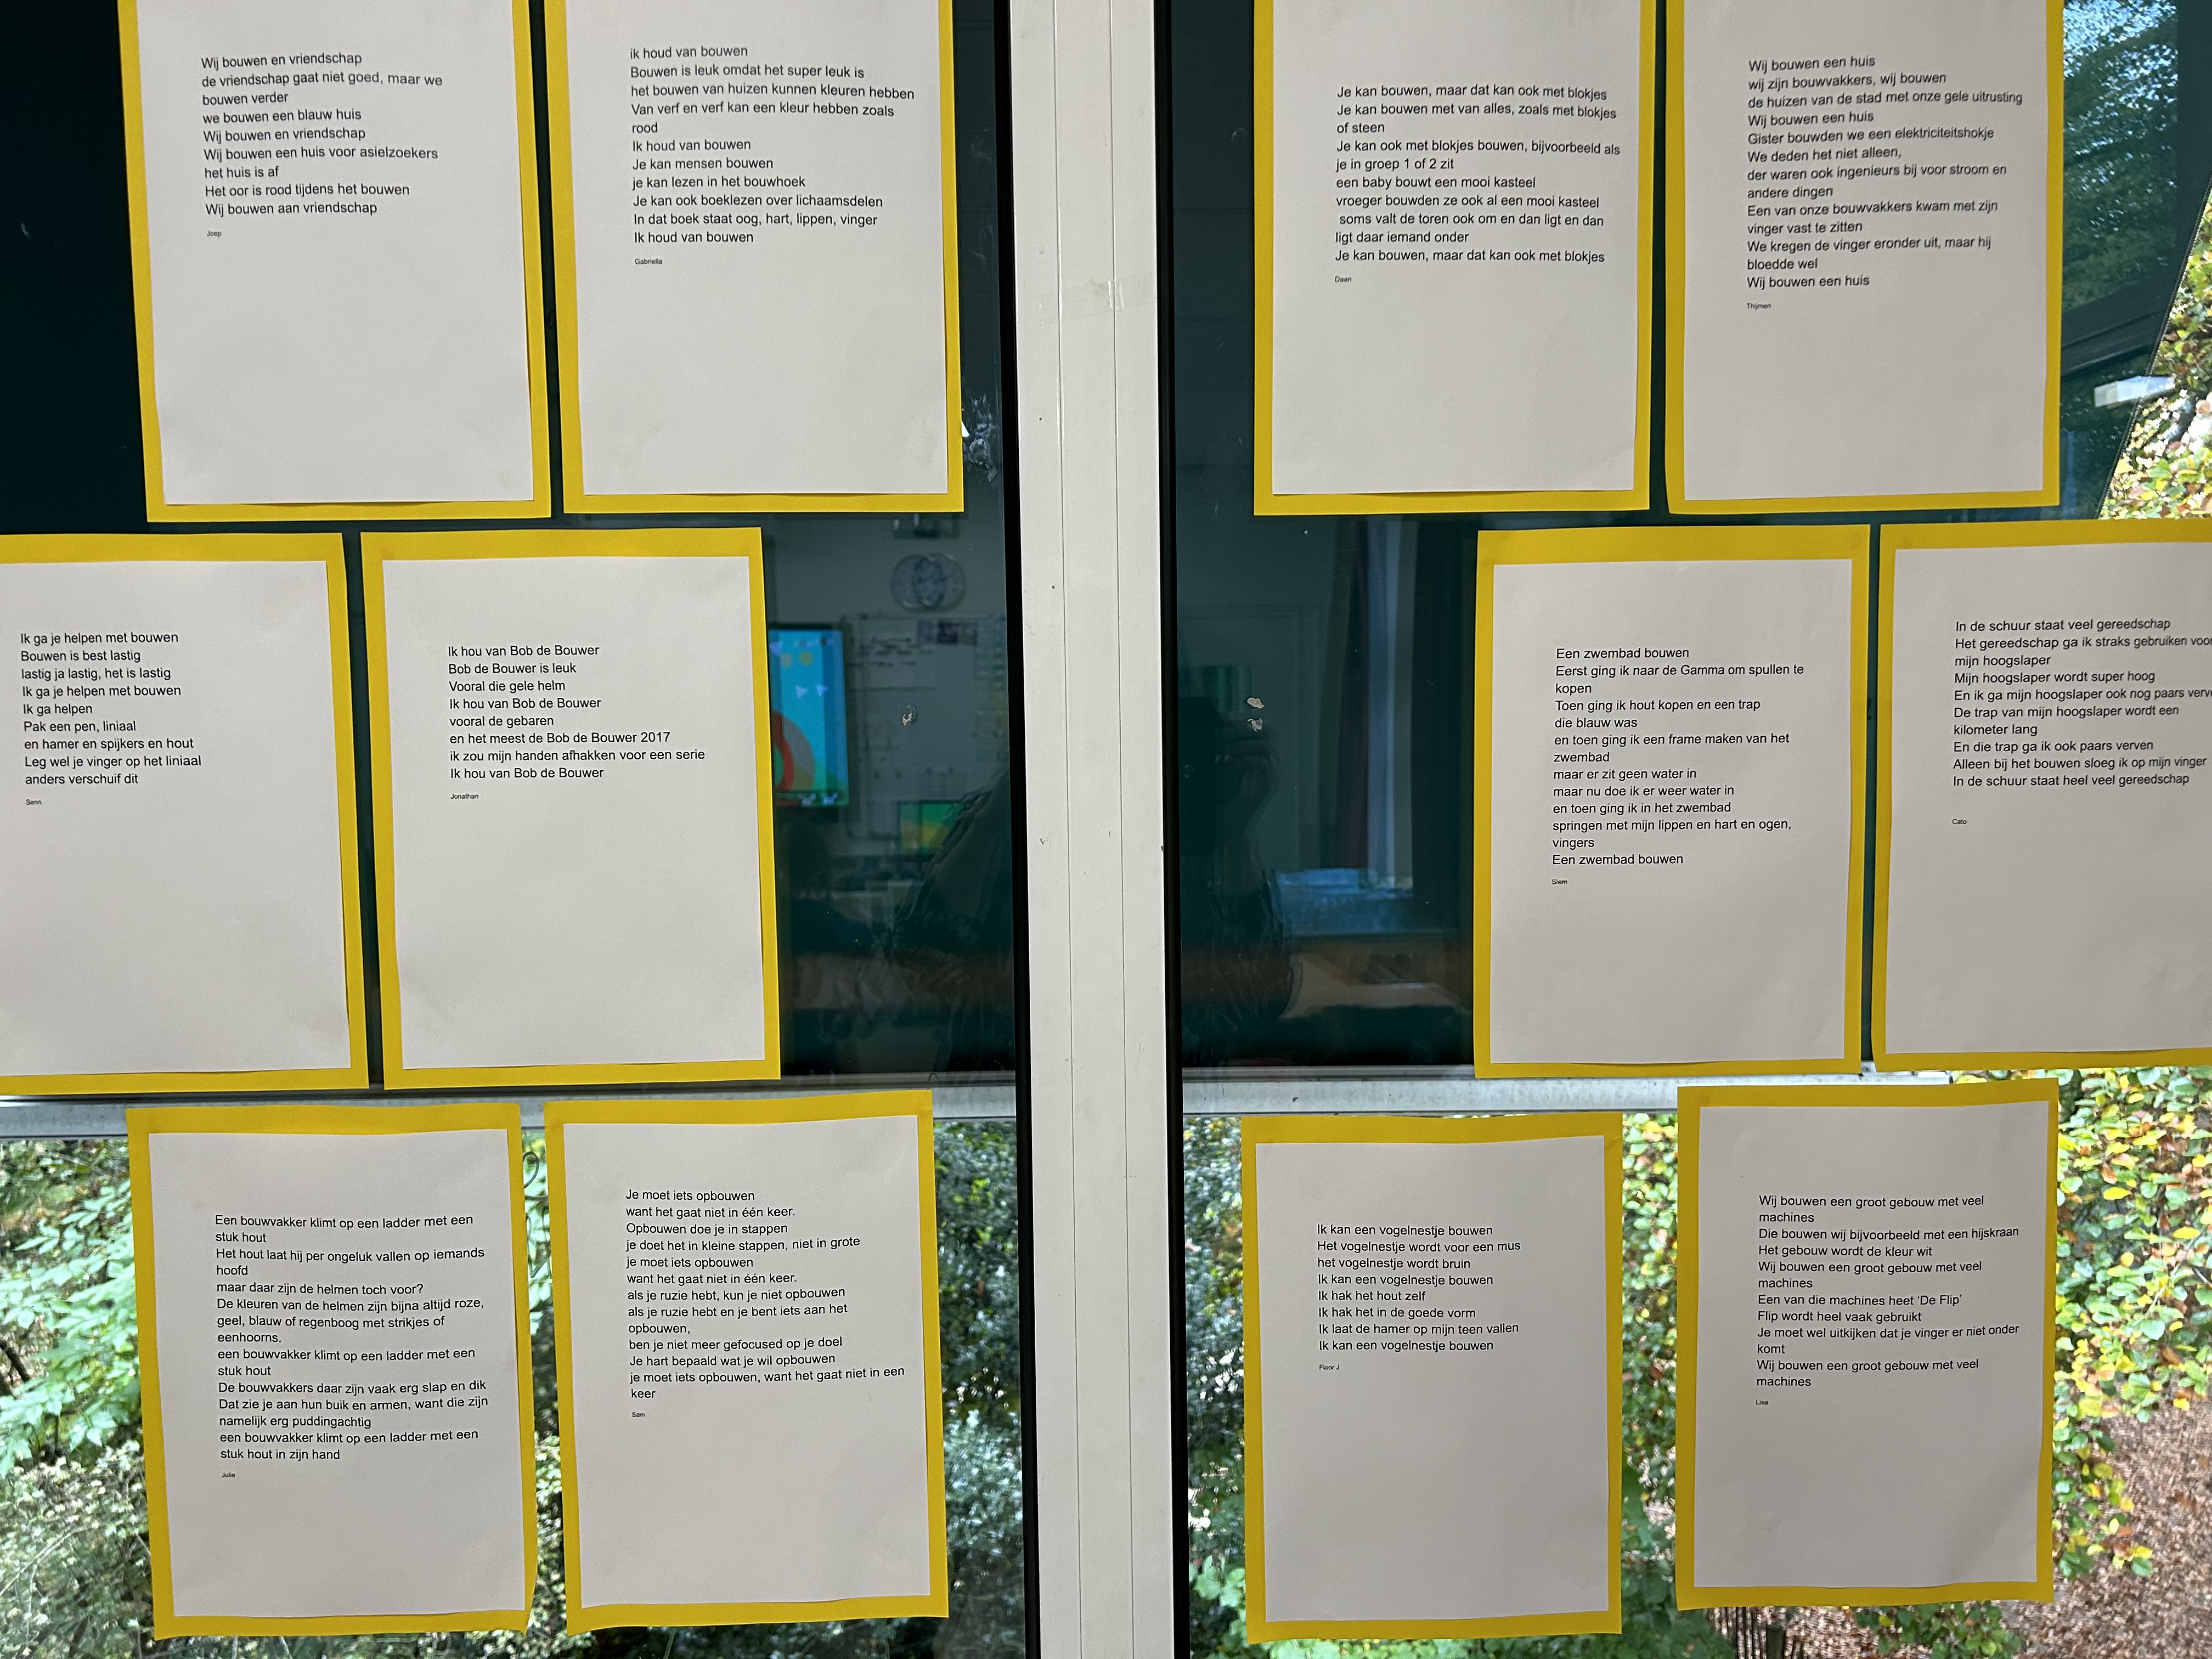 Wij bouwen en vriendschap
de vriendschap gaat niet goed, maar we
bouwen verder
we bouwen een blauw huis
Wij bouwen en vriendschap
Wij bouwen een huis voor asielzoekers
het huis is af
Het oor is rood tijdens het bouwen
Wij bouwen aan vriendschap
Joep
ik houd van bouwen
Bouwen is leuk omdat het super leuk is
het bouwen van huizen kunnen kleuren hebben
Van verf en verf kan een kleur hebben zoals
rood
Ik houd van bouwen
Je kan mensen bouwen
je kan lezen in het bouwhoek
Je kan ook boeklezen over lichaamsdelen
In dat boek staat oog, hart, lippen, vinger
Ik houd van bouwen
Gabriella
Je kan bouwen, maar dat kan ook met blokjes
Je kan bouwen met van alles, zoals met blokjes
of steen
Je kan ook met blokjes bouwen, bijvoorbeeld als
je in groep 1 of 2 zit
een baby bouwt een mooi kasteel
vroeger bouwden ze ook al een mooi kasteel
soms valt de toren ook om en dan ligt en dan
ligt daar iemand onder
Je kan bouwen, maar dat kan ook met blokjes
Daan
Wij bouwen een huis
wij zijn bouwvakkers, wij bouwen
de huizen van de stad met onze gele uitrusting
Wij bouwen een huis
Gister bouwden we een elektriciteitshokje
We deden het niet alleen,
der waren ook ingenieurs bij voor stroom en
andere dingen
Een van onze bouwvakkers kwam met zijn
vinger vast te zitten
We kregen de vinger eronder uit, maar hij
bloedde wel
Wij bouwen een huis
Thijmen
Ik ga je helpen met bouwen
Bouwen is best lastig
lastig ja lastig, het is lastig
Ik ga je helpen met bouwen
Ik ga helpen
Pak een pen, liniaal
en hamer en spijkers en hout
Leg wel je vinger op het liniaal
anders verschuif dit
Senn
Ik hou van Bob de Bouwer
Bob de Bouwer is leuk
Vooral die gele helm
Ik hou van Bob de Bouwer
vooral de gebaren
en het meest de Bob de Bouwer 2017
ik zou mijn handen afhakken voor een serie
Ik hou van Bob de Bouwer
Jonathan
Een zwembad bouwen
Eerst ging ik naar de Gamma om spullen te
kopen
Toen ging ik hout kopen en een trap
die blauw was
en toen ging ik een frame maken van het
zwembad
maar er zit geen water in
maar nu doe ik er weer water in
en toen ging ik in het zwembad
springen met mijn lippen en hart en ogen,
vingers
Een zwembad bouwen
Siem
In de schuur staat veel gereedschap
Het gereedschap ga ik straks gebruiken voor
mijn hoogslaper
Mijn hoogslaper wordt super hoog
En ik ga mijn hoogslaper ook nog paars
De trap van mijn hoogslaper wordt een
kilometer lang
En die trap ga ik ook paars verven
Alleen bij het bouwen sloeg ik op mijn vinger
In de schuur staat heel veel gereedschap
Cato
Een bouwvakker klimt op een ladder met een
stuk hout
Het hout laat hij per ongeluk vallen op iemands
hoofd
maar daar zijn de helmen toch voor?
De kleuren van de helmen zijn bijna altijd roze,
geel, blauw of regenboog met strikjes of
eenhoorns.
een bouwvakker klimt op een ladder met een
stuk hout
De bouwvakkers daar zijn vaak erg slap en dik
Dat zie je aan hun buik en armen, want die zijn
namelijk erg puddingachtig
een bouwvakker klimt op een ladder met een
stuk hout in zijn hand
Julie
Je moet iets opbouwen
want het gaat niet in één keer.
Opbouwen doe je in stappen
je doet het in kleine stappen, niet in grote
je moet iets opbouwen
want het gaat niet in één keer.
als je ruzie hebt, kun je niet opbouwen
als je ruzie hebt en je bent iets aan het
opbouwen,
ben je niet meer gefocused op je doel
Je hart bepaald wat je wil opbouwen
je moet iets opbouwen, want het gaat niet in een
keer
Sam
Ik kan een vogelnestje bouwen
Het vogelnestje wordt voor een mus
het vogelnestje wordt bruin
Ik kan een vogelnestje bouwen
Ik hak het hout zelf
Ik hak het in de goede vorm
Ik laat de hamer op mijn teen vallen
Ik kan een vogelnestje bouwen
Floor J
Wij bouwen een groot gebouw met veel
machines
Die bouwen wij bijvoorbeeld met een hijskraan
Het gebouw wordt de kleur wit
Wij bouwen een groot gebouw met veel
machines
Een van die machines heet ‘De Flip’
Flip wordt heel vaak gebruikt
Je moet wel uitkijken dat je vinger er niet onder
komt
Wij bouwen een groot gebouw met veel
machines
Lisa